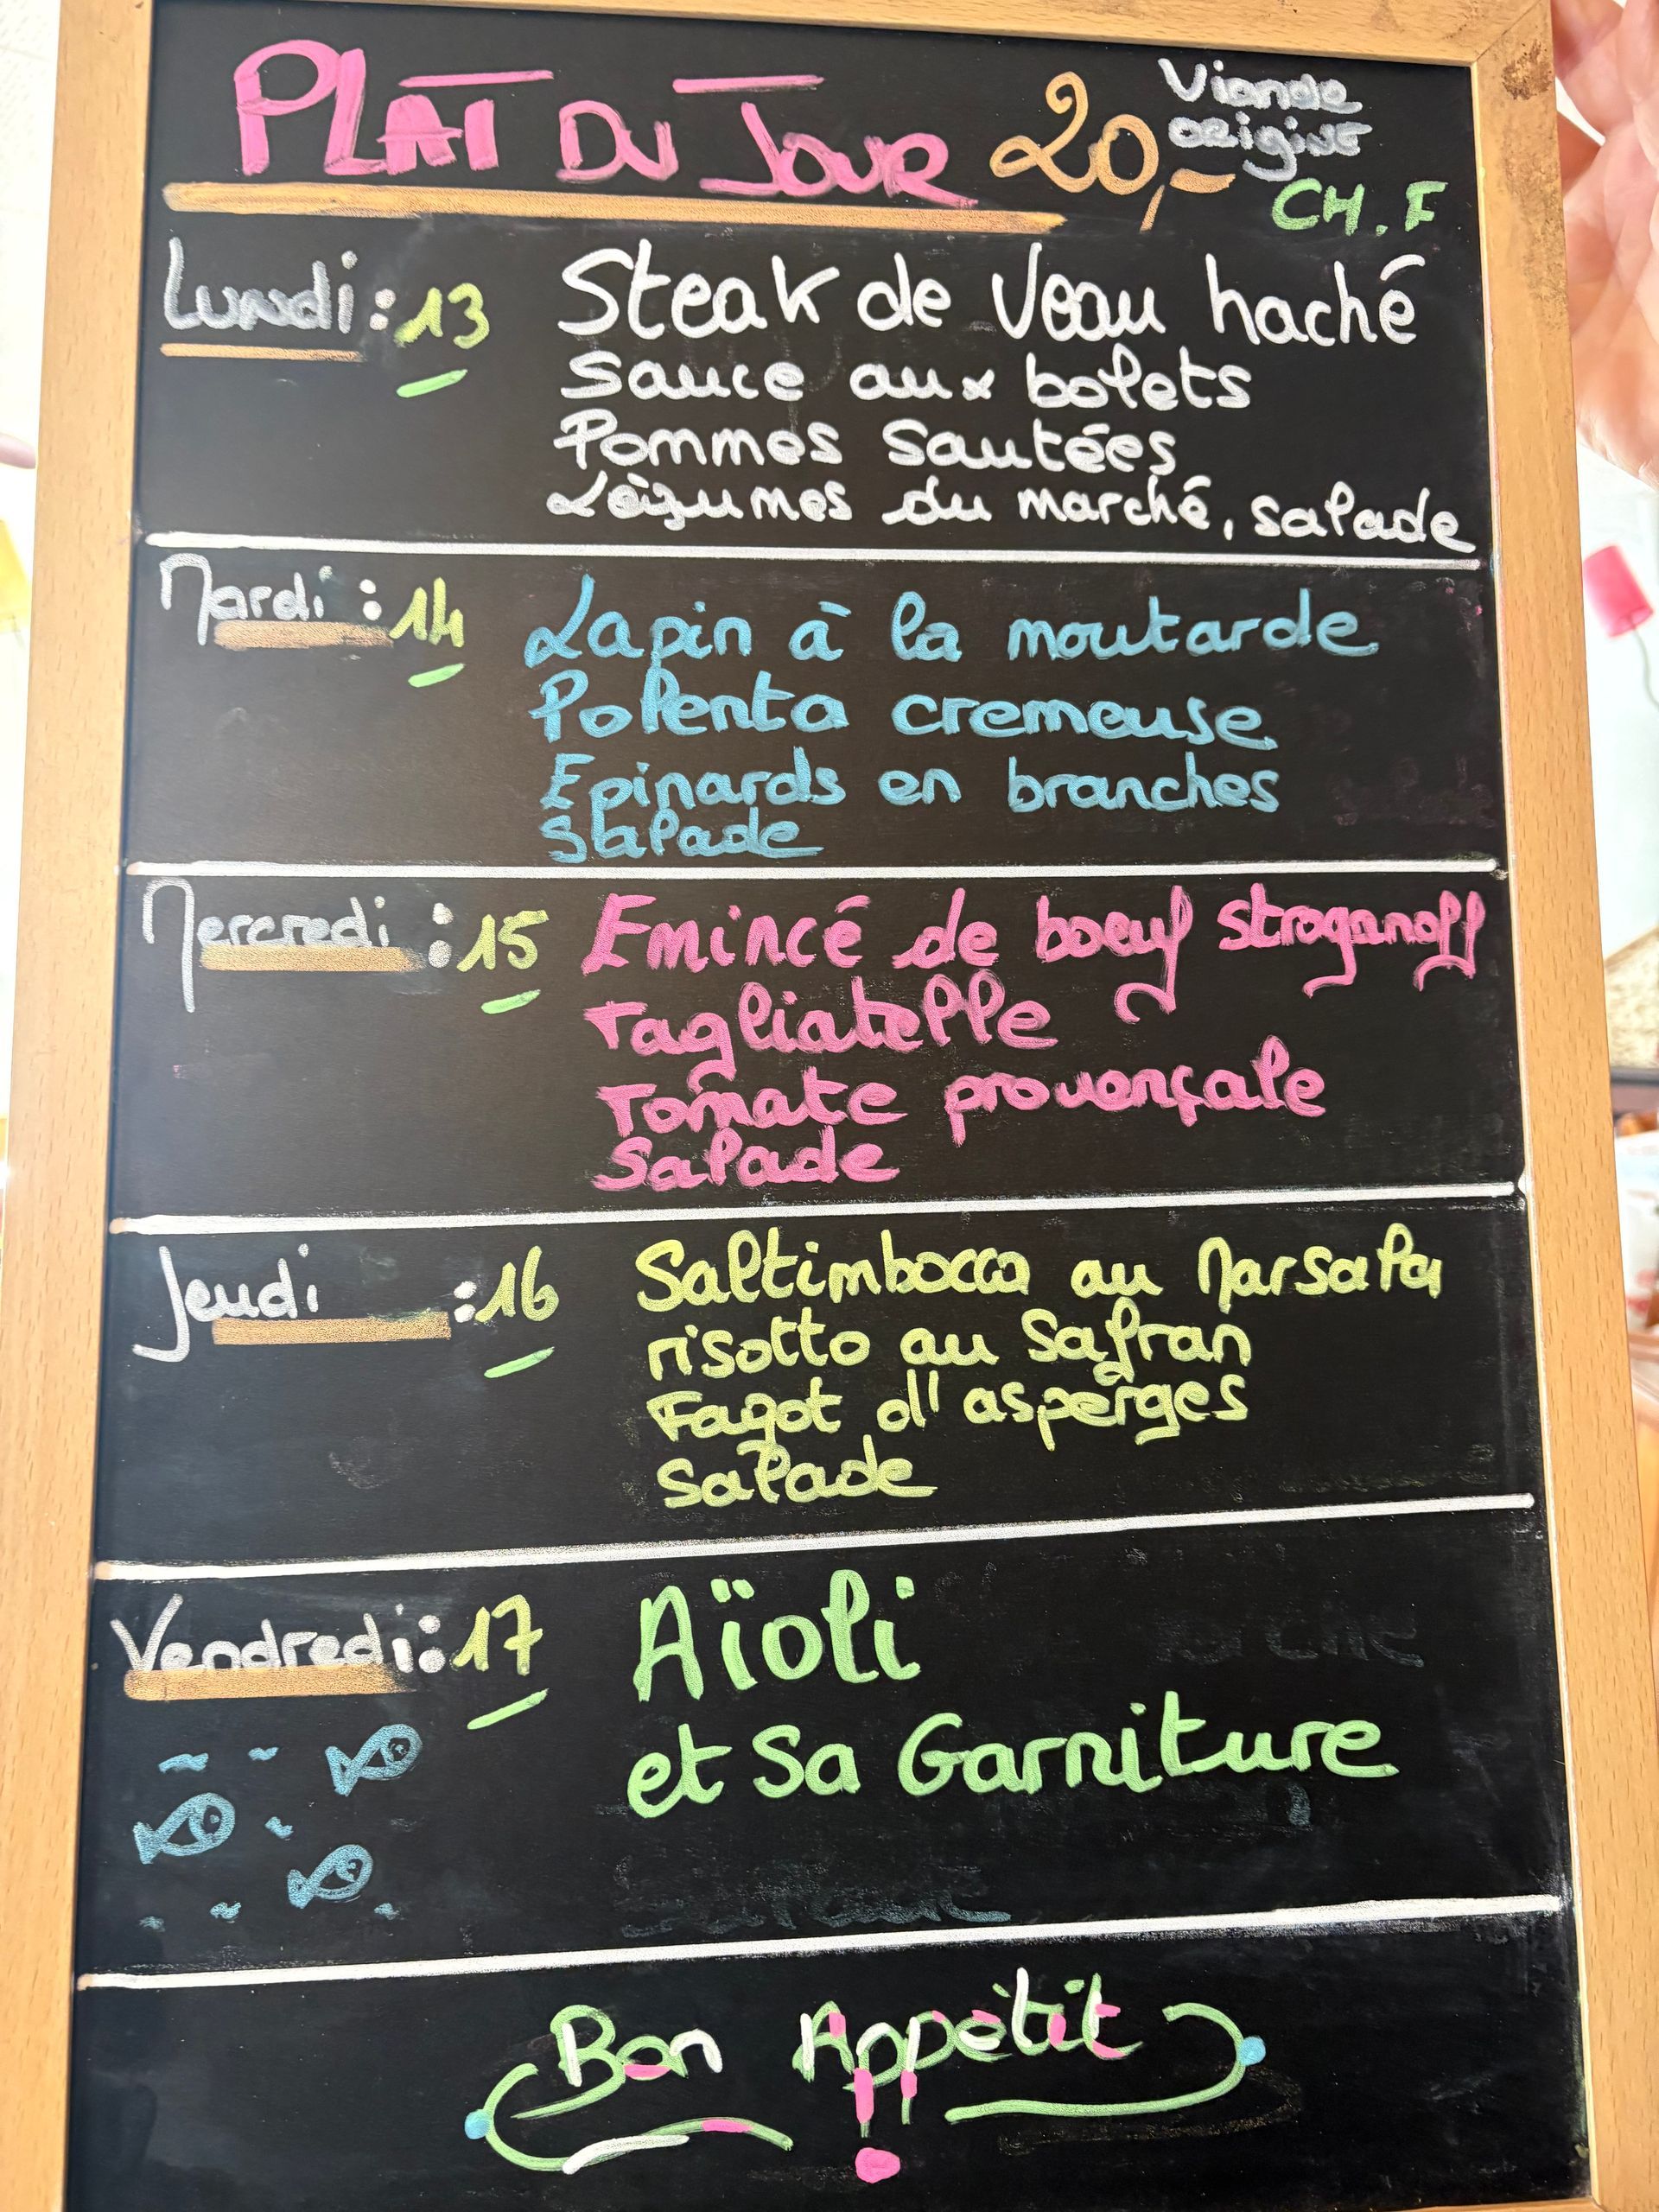 PLAT DU JOUR 20,-
Viande
origine
CH.F
Lundi: 13 Steak de Veau haché
Sauce aux bolets
Pommes Sautées
Légumes du marché, salade
Mardi: 14 Lapin à la moutarde
Polenta cremeuse
Epinards en branches
Salade
Mercredi: 15 Emincé de boeuf stroganoff
Tagliatelle
Tomate provençale
Salade
Jeudi :16 Saltimbocca au Marsala
risotto au Safran
Fagot d'asperges
Salade
Vendredi: 17 Aïoli
et Sa Garniture
Bon Appétit !